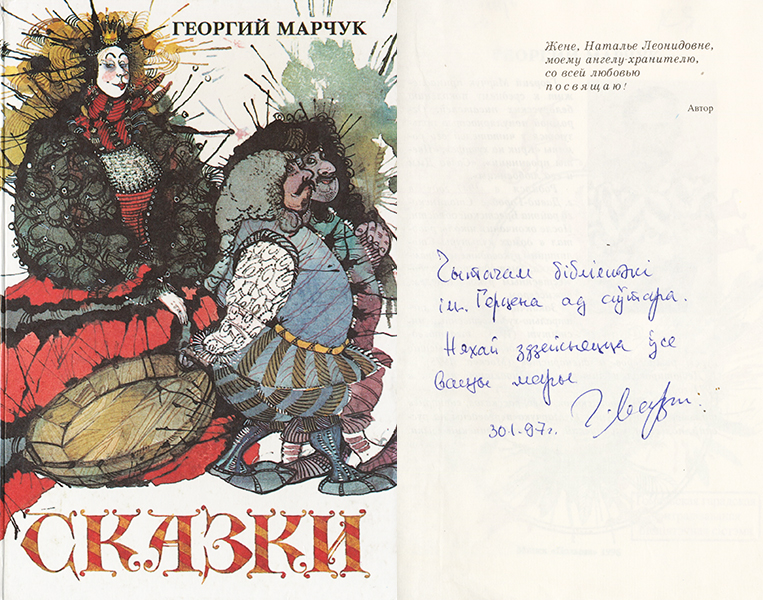 ГЕОРГИЙ МАРЧУК
СКАЗКИ
Жене, Наталье Леонидовне,
моему ангелу-хранителю,
со всей любовью
посвящаю!
Автор
Чытачам бібліятэкі
ім. Герцэна ад аўтара.
Няхай здзейсняцца ўсе
вашы мары
30.1.97г.